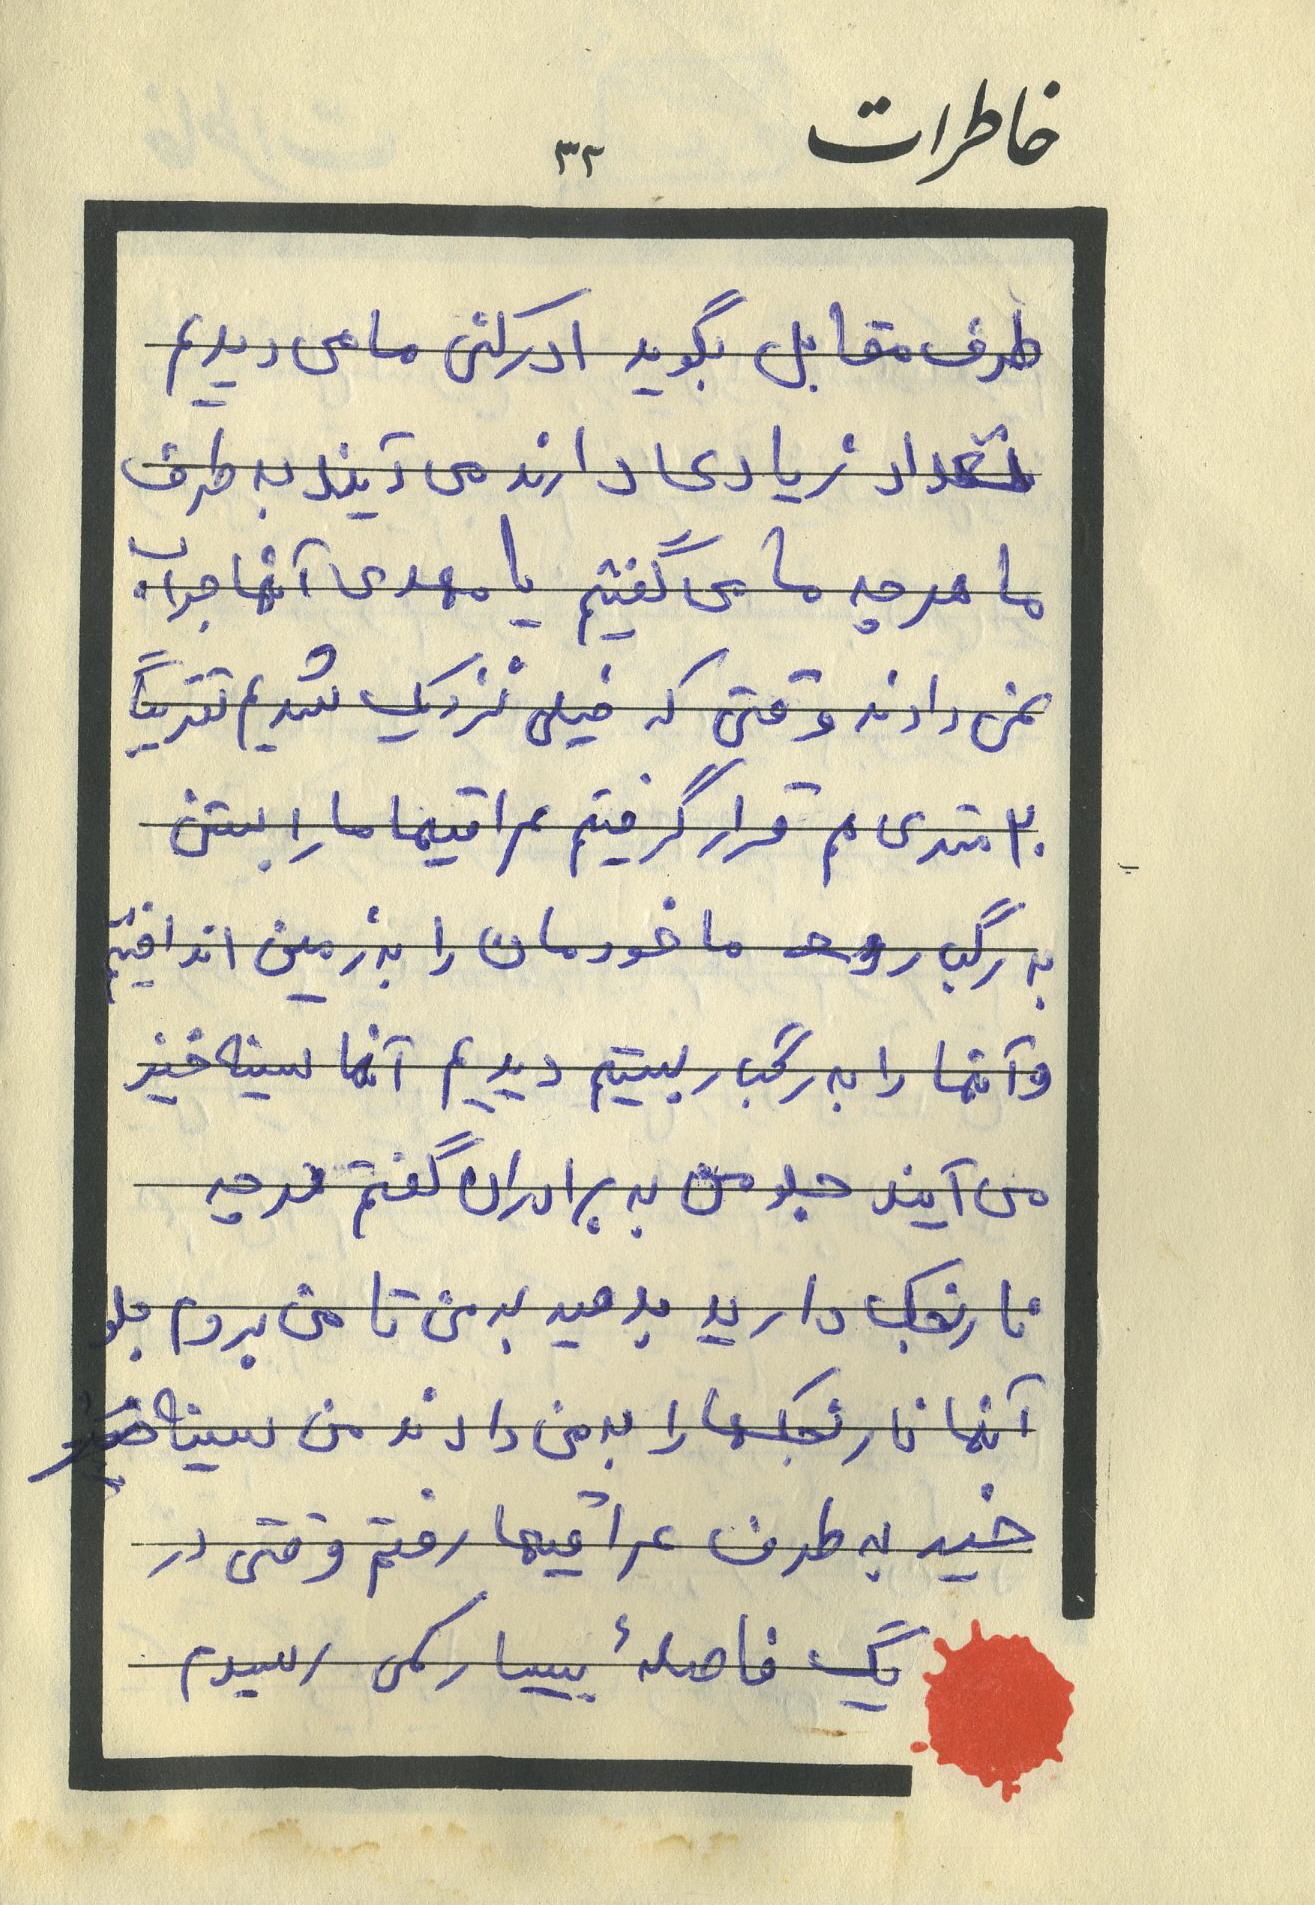 خاطرات
۳۲
طرف مقابل بگوید ادرکنی ما می دیدیم
تعداد زیادی دارند می آیند به طرف
ما هرچه ما می گفتیم یا مهدی آنها جواب
نمی دادند وقتی که خیلی نزدیک شدیم تقریباً
۲۰ متری هم قرار گرفتیم عراقیها ما را بستن
به رگبار و ما خودمان را به زمین انداختیم
و آنها را به رگبار بستیم دیدیم آنها سینه خیز
می آیند جلو من به برادران گفتم هرچه
نارنجک دارید بدهید به من تا من بروم جلو
آنها نارنجکها را به من دادند من سینه خیز
خیز به طرف عراقیها رفتم وقتی در
یک فاصلهٔ بسیار کمی رسیدم